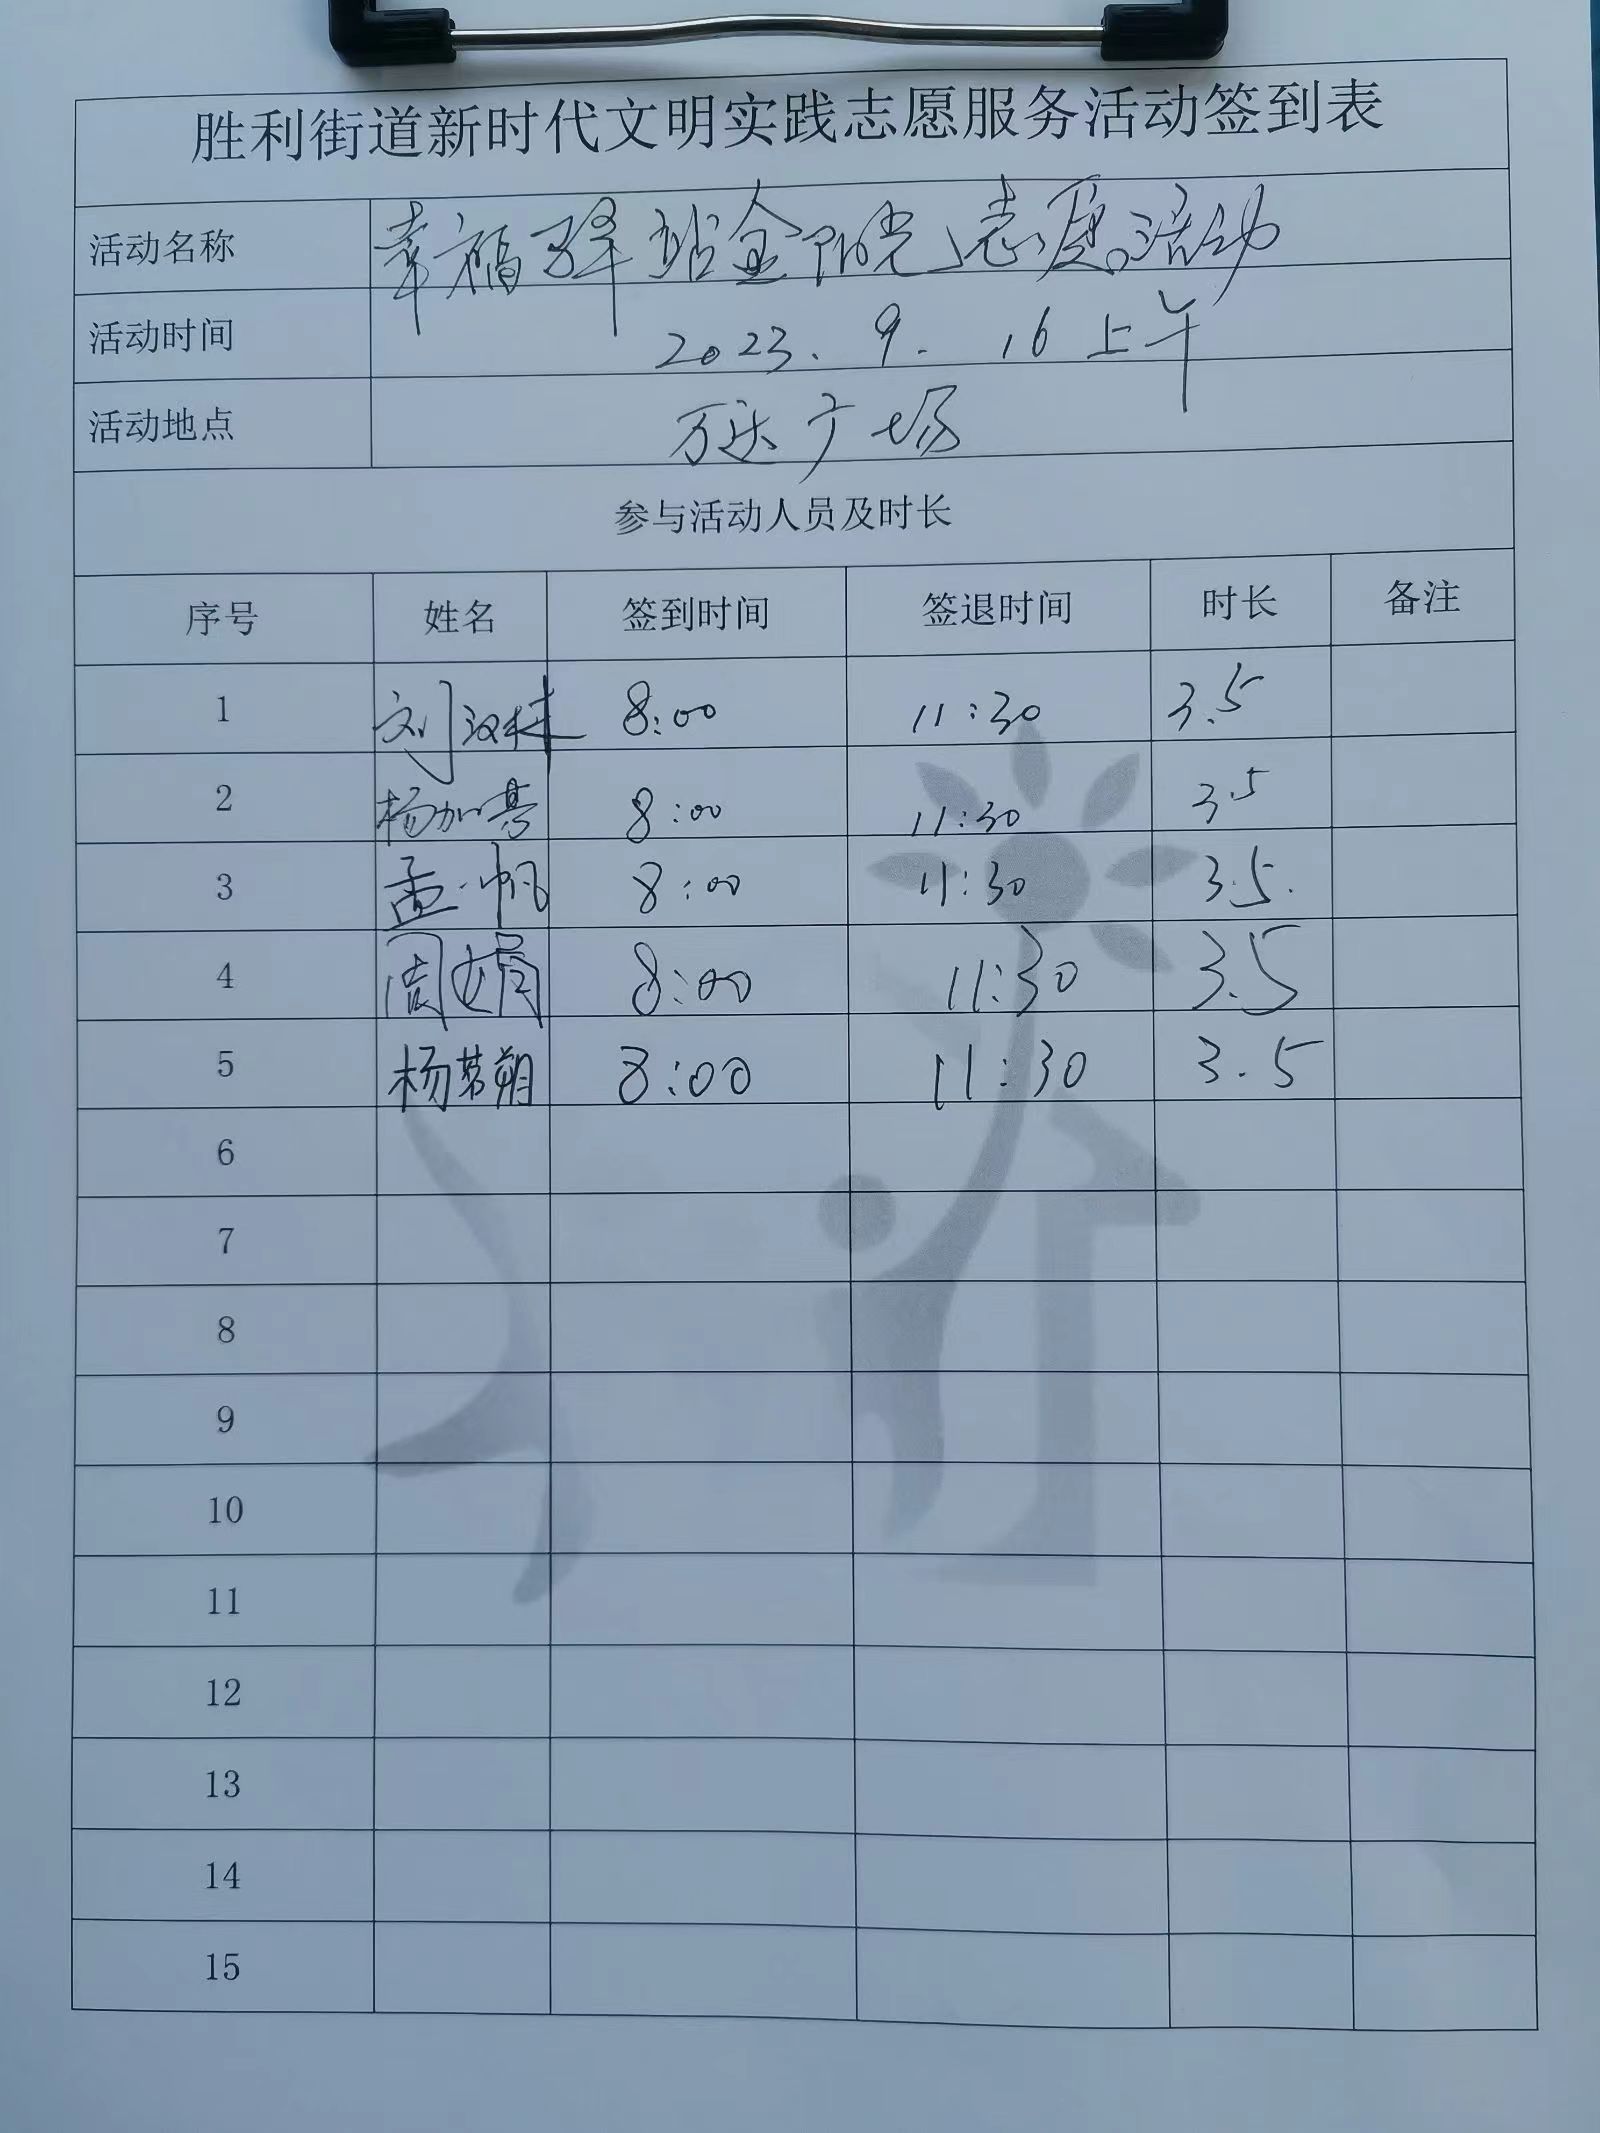 胜利街道新时代文明实践志愿服务活动签到表
活动名称 幸福驿站金阳光志愿活动
活动时间 2023.9.16上午
活动地点 万达广场
参与活动人员及时长
序号 姓名 签到时间 签退时间 时长 备注
1 刘汉 8:00 11:30 3.5
2 杨加 8:00 11:30 3.5
3 孟帆 8:00 11:30 3.5.
4 周娟 8:00 11:30 3.5
5 杨茗朔 8:00 11:30 3.5
6
7
8
9
10
11
12
13
14
15